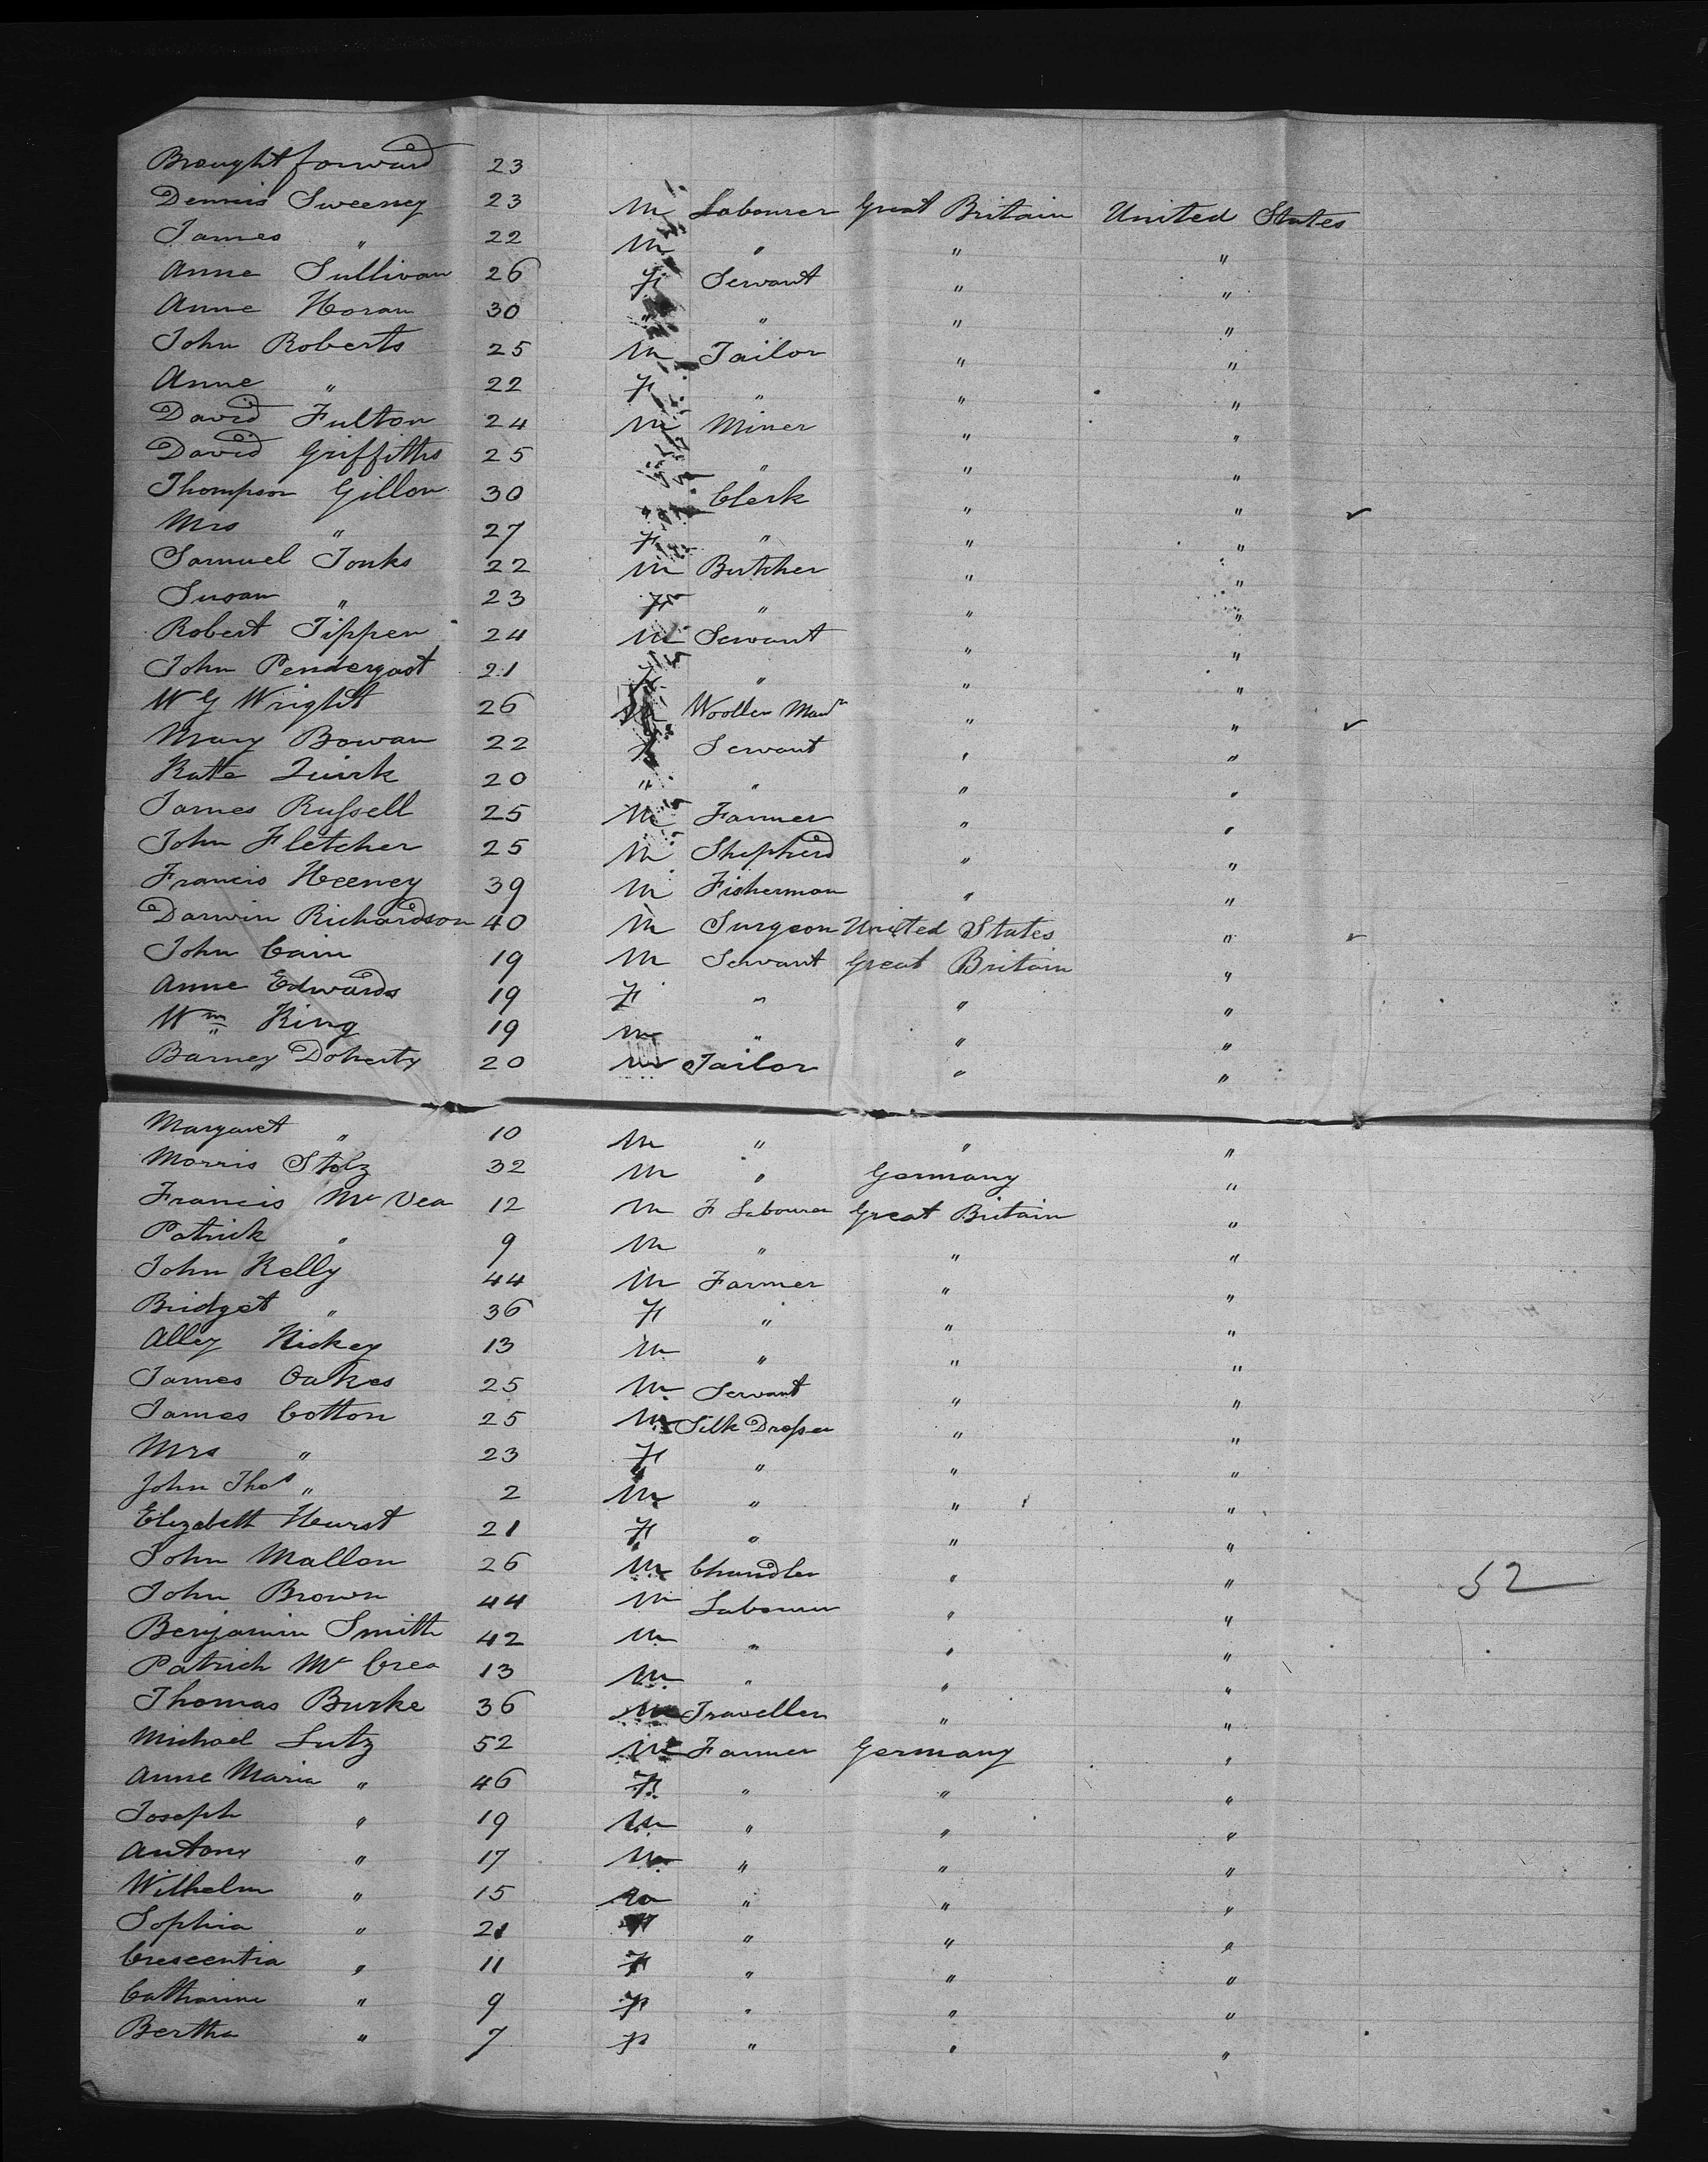 Brought forward 23
Dennis Sweeney 23 M Labourer Great Britain United States
James " 22 M " " "
Anne Sullivan 26 F Servant " "
Anne Horan 30 " " " "
John Roberts 25 M Tailor " "
Anne " 22 F " " "
David Fulton 24 M Miner " "
David Griffiths 25 " " " "
Thompson Gillon 30 " Clerk " " ✓
Mrs " 27 F " " "
Samuel Tonks 22 M Butcher " "
Susan " 23 F " " "
Robert Tippen 24 M Servant " "
John Pendergast 21 " " "
W G Wright 26 M Woollen " " ✓
Mary Bowan 22 F Servant " "
Kate Quirk 20 " " " "
James Russell 25 M Farmer " "
John Fletcher 25 M Shepherd " "
Francis Heeney 39 M Fisherman " "
Darwin Richardson 40 M Surgeon United States " ✓
John Cain 19 M Servant Great Britain "
Anne Edwards 19 F " " "
Wm King 19 M " " "
Barney Doherty 20 M Tailor " "
Margaret " 10 M " " "
Morris Stolz 32 M " Germany "
Francis Mc Vea 12 M F Labourer Great Britain "
Patrick " 9 M " " "
John Kelly 44 M Farmer " "
Bridget " 36 F " " "
Alley Hickey 13 M " " "
James Oakes 25 M Servant " "
James Cotton 25 M Silk Dresser " "
Mrs " 23 F " " "
John Thos " 2 M " " "
Elizabeth Hurst 21 F " " "
John Mallon 26 M Chandler " " 52
John Brown 44 M Labourer " "
Benjamin Smith 42 M " " "
Patrick Mc Crea 13 M " " "
Thomas Burke 36 M Traveller " "
Michael Lutz 52 M Farmer Germany "
Anne Maria " 46 F " " "
Joseph " 19 M " " "
Antony " 17 M " " "
Wilhelm " 15 M " " "
Sophia " 21 F " " "
Crescentia " 11 F " " "
Catharine " 9 F " " "
Bertha " 7 F " " "